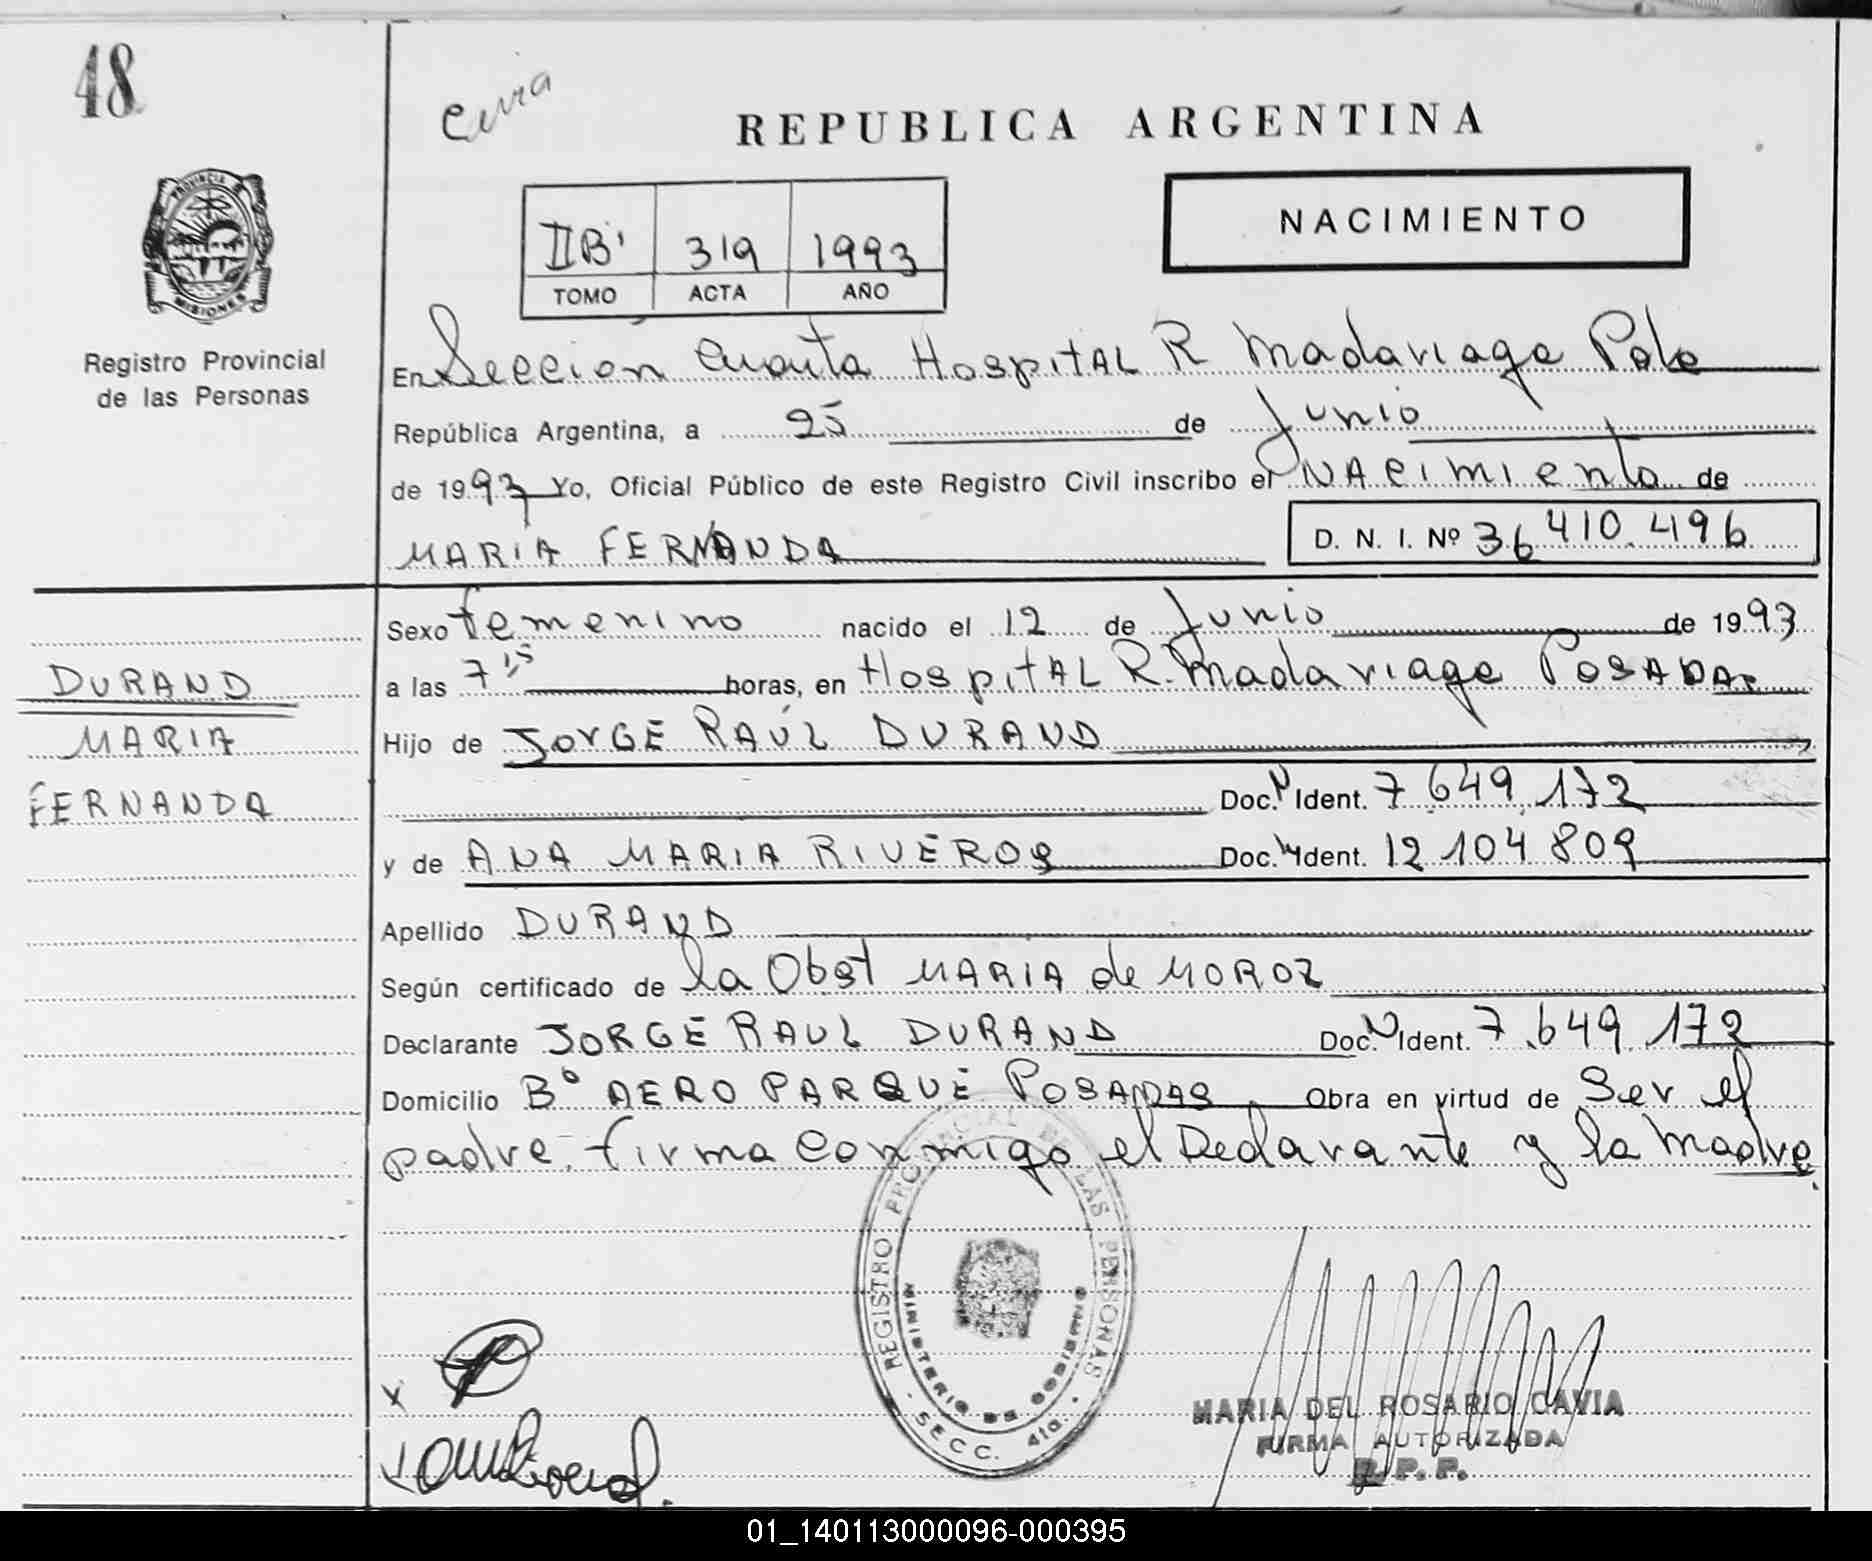 48
REPUBLICA ARGENTINA
PROVINCIA
MISIONES
Registro Provincial
de las Personas
IIB' 319 1993
TOMO ACTA AÑO
NACIMIENTO
En Sección Cuarta Hospital R Madariaga
República Argentina, a 25 de Junio
de 1993 Yo, Oficial Público de este Registro Civil inscribo el NAcimiento de
MARIA FERNANDA D. N. I. Nº 36 410.496
DURAND
MARIA
FERNANDA
Sexo femenino nacido el 12 de Junio de 1993
a las 7 15 horas, en HospitAL R. Madariaga POSADAS
Hijo de JORGE RAÚL DURAND
Doc. N Ident. 7 649.172
y de ANA MARIA RIVEROS Doc. N Ident. 12 104 809
Apellido DURAND
Según certificado de la Obst MARIA de MOROZ
Declarante JORGE RAUL DURAND Doc. N Ident. 7.649.172
Domicilio Bº AERO PARQUE POSADAS Obra en virtud de Ser el
padre. firma conmigo el Declarante y la madre.
REGISTRO PROVINCIAL DE LAS PERSONAS
MINISTERIO DE GOBIERNO
SECC. 4ta.
MARIA DEL ROSARIO CAVIA
FIRMA AUTORIZADA
R. P. P.
01_140113000096-000395